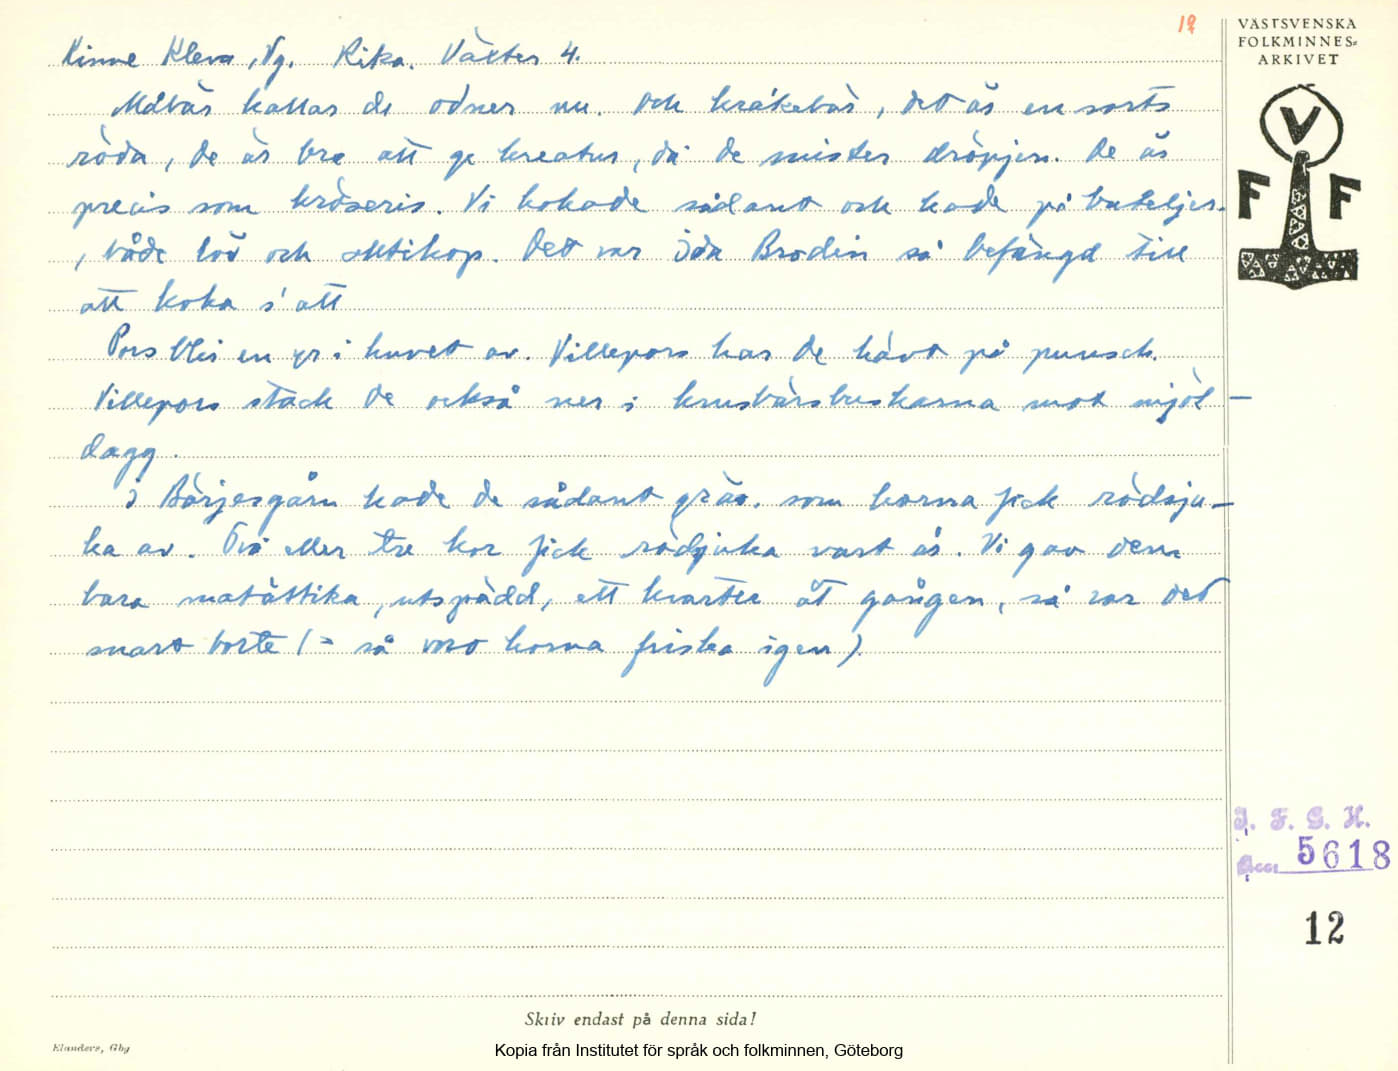 12
VÄSTSVENSKA
FOLKMINNES=
ARKIVET
V
F F
Kinne Kleva, Vg. Rika. Växter 4.
Mölbär kallas de odner nu. Och kråkebär, det äs en sorts
röda, de är bra att ge kreatur, då de mister dröpjen. De äs
precis som kröseris. Vi kokade sådant och hade på buteljer.
, både löv och alltihop. Det var Ida Brodin så befängd till
att koka s' att
Pors blir en yr i huvet av. Villepors har de hävt på punsch.
Villepors stack de också ner i krusbärsbuskarna mot mjöl-
dagg.
I Börjesgårn hade de sådant gräs, som korna fick rödsju-
ka av. Två eller tre kor fick rödsjuka vart år. Vi gav dem
bara matättika, utspädd, ett kvarter åt gången, så var det
snart borte (= så voro korna friska igen).
I. F. G. H.
Acc. 5618
12
Skriv endast på denna sida!
Elanders, Gbg
Kopia från Institutet för språk och folkminnen, Göteborg